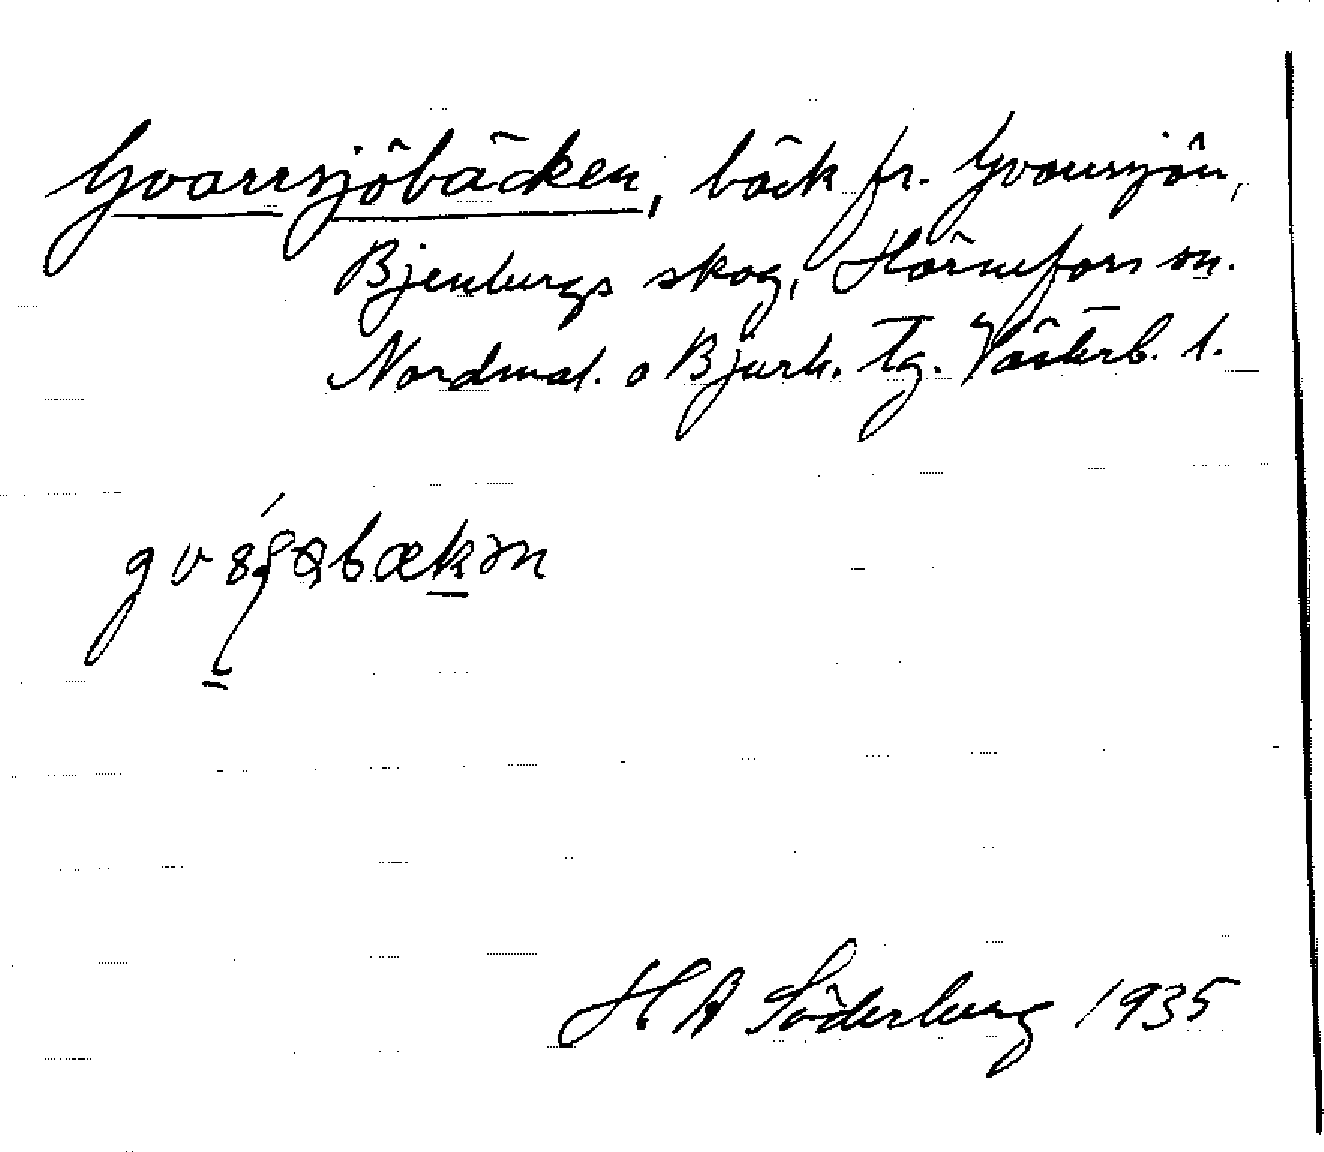 Gvarrsjöbäcken, bäck fr. Gvarrsjön,
Bjenbergs skog, Hörnefors sn.
Nordmal. o Bjurh. Tg. Västerb. l.
H A Söderberg 1935